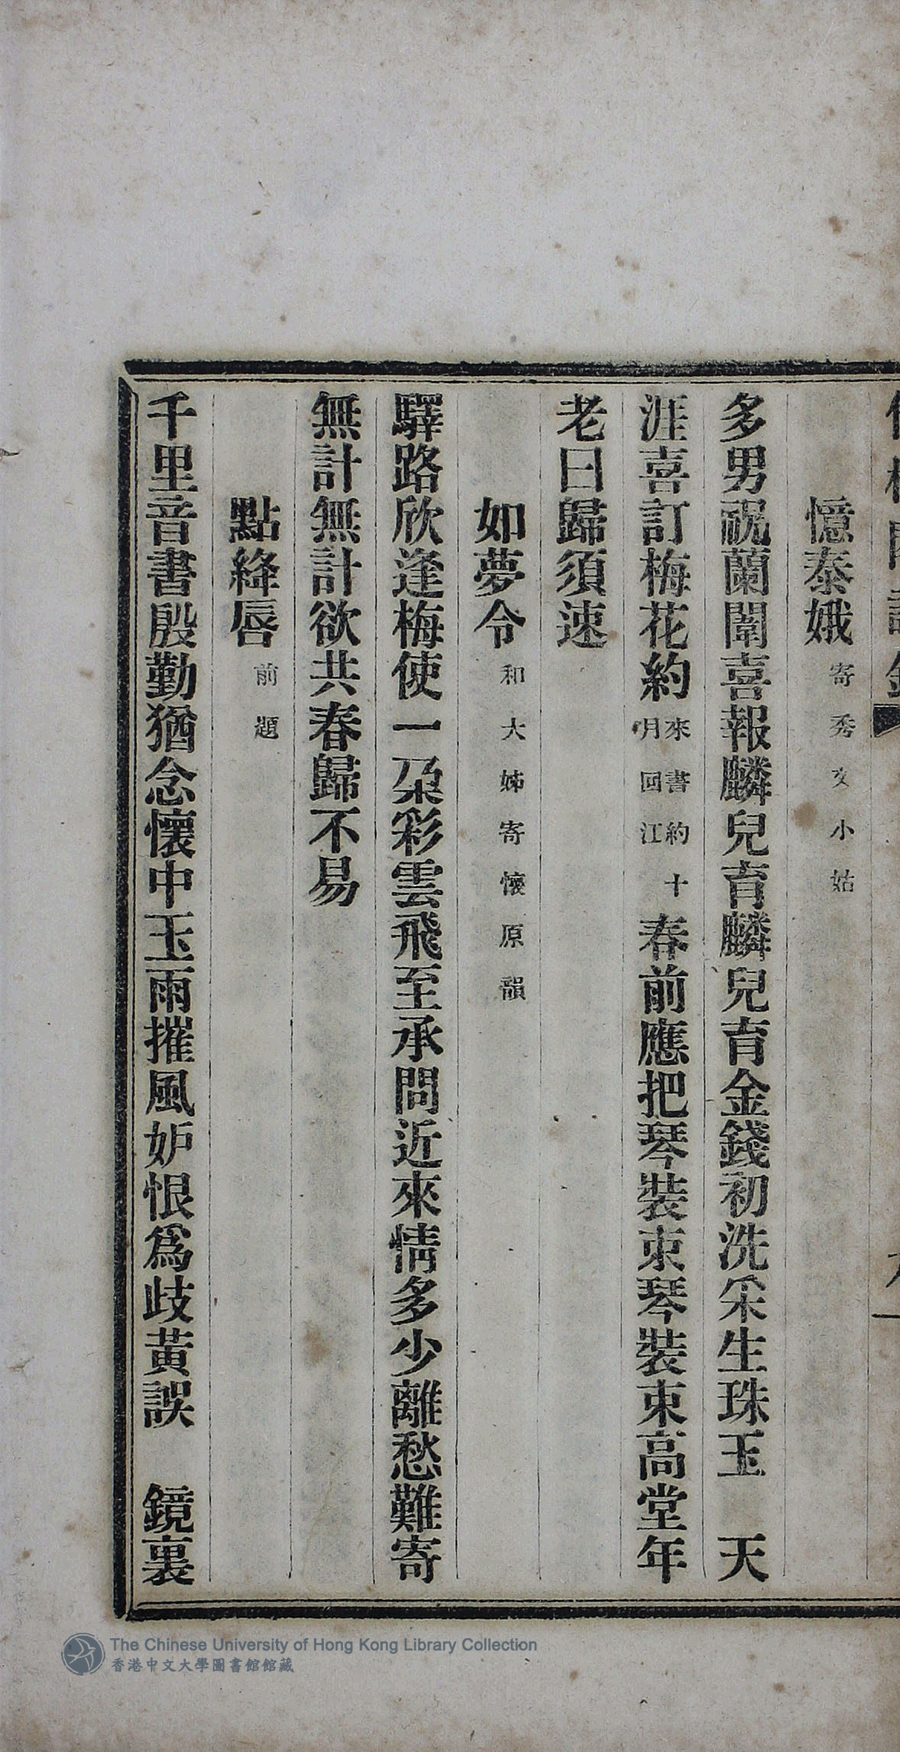 憶泰娥寄秀文小姑
多男祝蘭闈喜報麟兒育麟兒育金錢初洗釆生珠玉　天
涯喜訂梅花約來書約十月回江春前應把琴裝束琴裝束高堂年
老曰歸須速
如夢令和大姊寄懷原韻
驛路欣逢梅使一朶彩雲飛至承問近來情多少離愁難寄
無計無計欲共春歸不易
點絳唇前題
千里音書殷勤猶念懷中玉雨摧風妒恨爲歧黃誤　鏡裏
The Chinese University of Hong Kong Library Collection
香港中文大學圖書館館藏